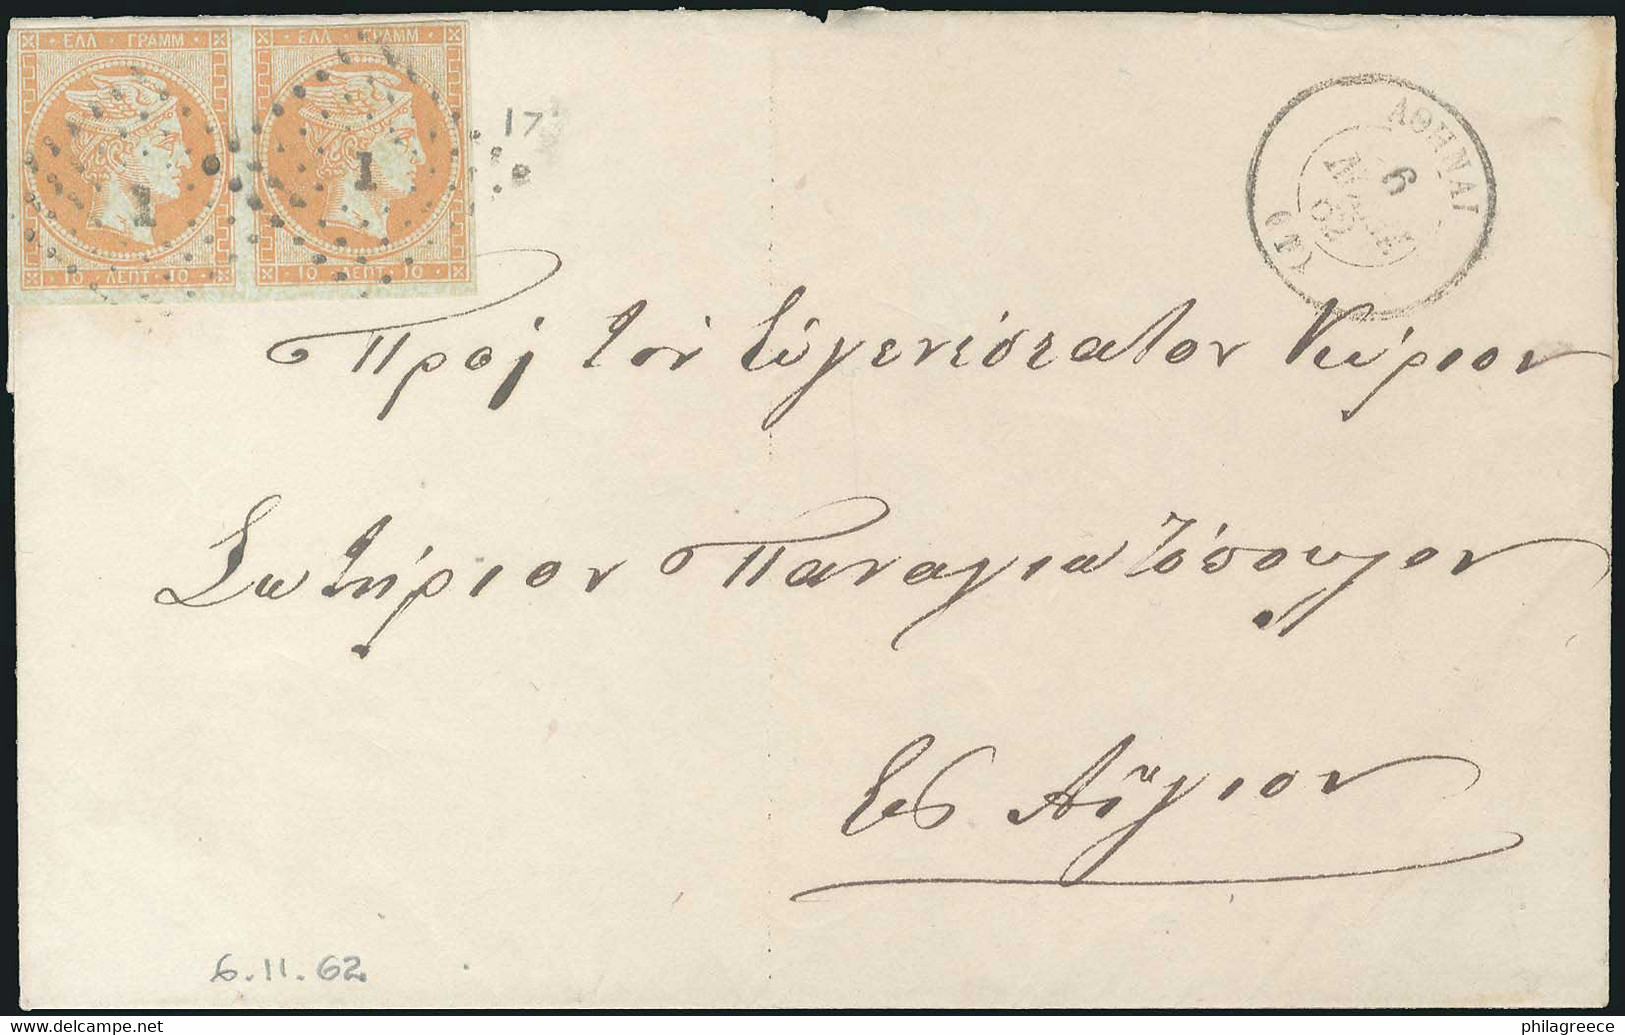 ΕΛΛ ΓΡΑΜΜ ΕΛΛ ΓΡΑΜΜ
1 1
10 ΛΕΠΤ 10 10 ΛΕΠΤ 10
17
ΑΘΗΝΑΙ
6
62
(1)
Πρὸς τὸν Εὐγενέστατον Κύριον
Σωτήριον Παναγιωτόπουλον
Εἰς Αἴγιον
6.11.62
philagreece
www.delcampe.net